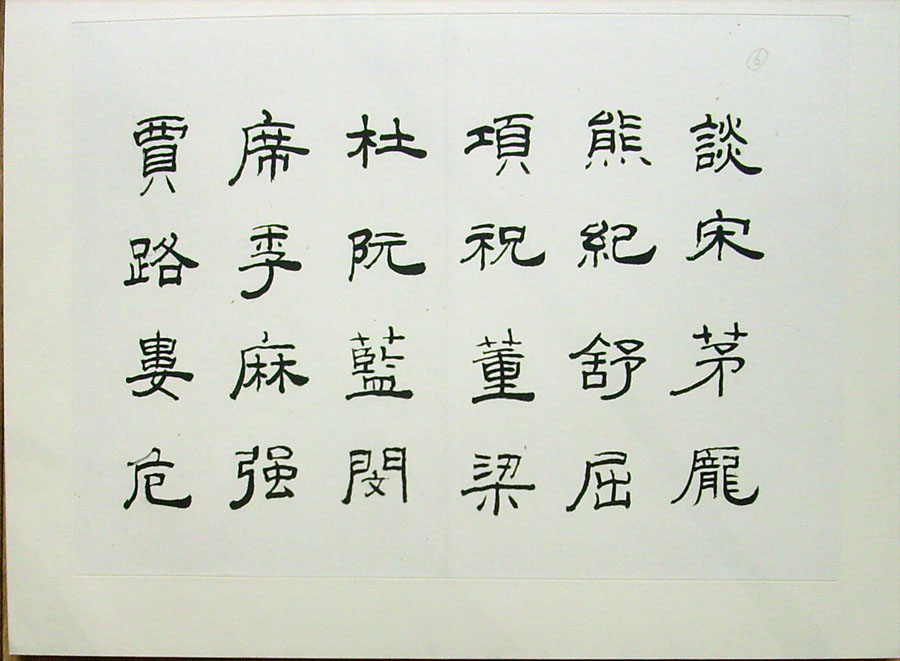 ⑥
談宋茅龐
熊紀舒屈
項祝董梁
杜阮藍閔
席季麻强
賈路婁危